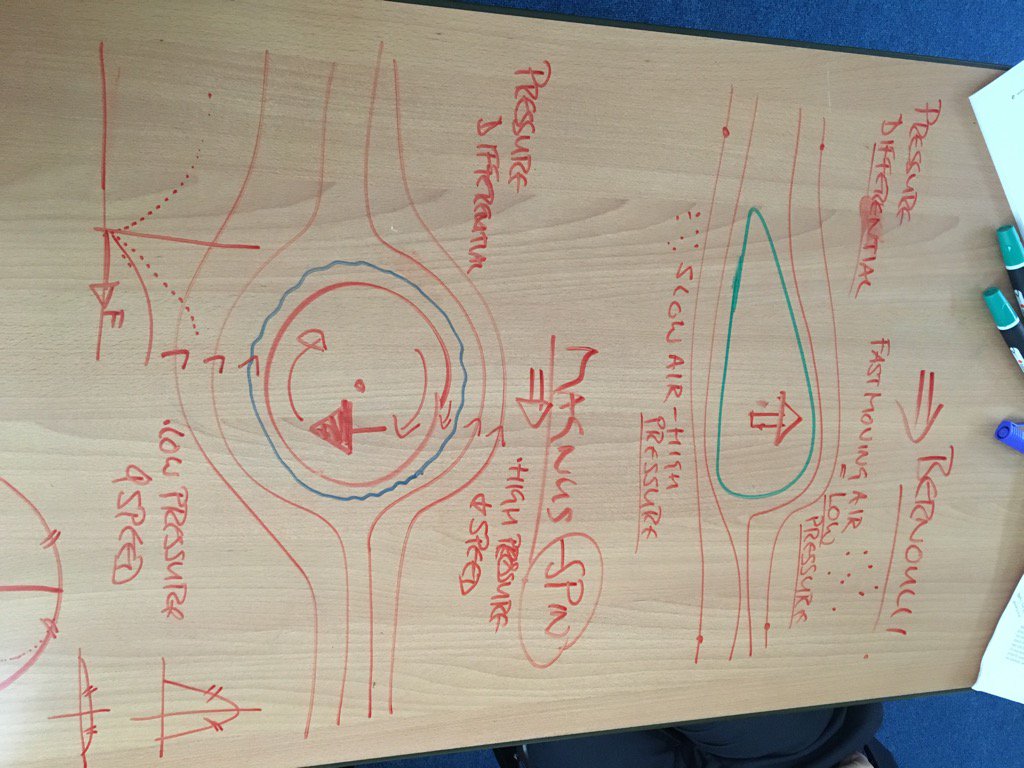 ⇒ BERNOULLI
PRESSURE
DIFFERENTIAL
FAST MOVING AIR ∴
LOW
PRESSURE
∴ SLOW AIR - HIGH
PRESSURE
⇒ MAGNUS - SPIN
PRESSURE
DIFFERENTIAL
• HIGH PRESSURE
& SPEED
• LOW PRESSURE
& SPEED
F